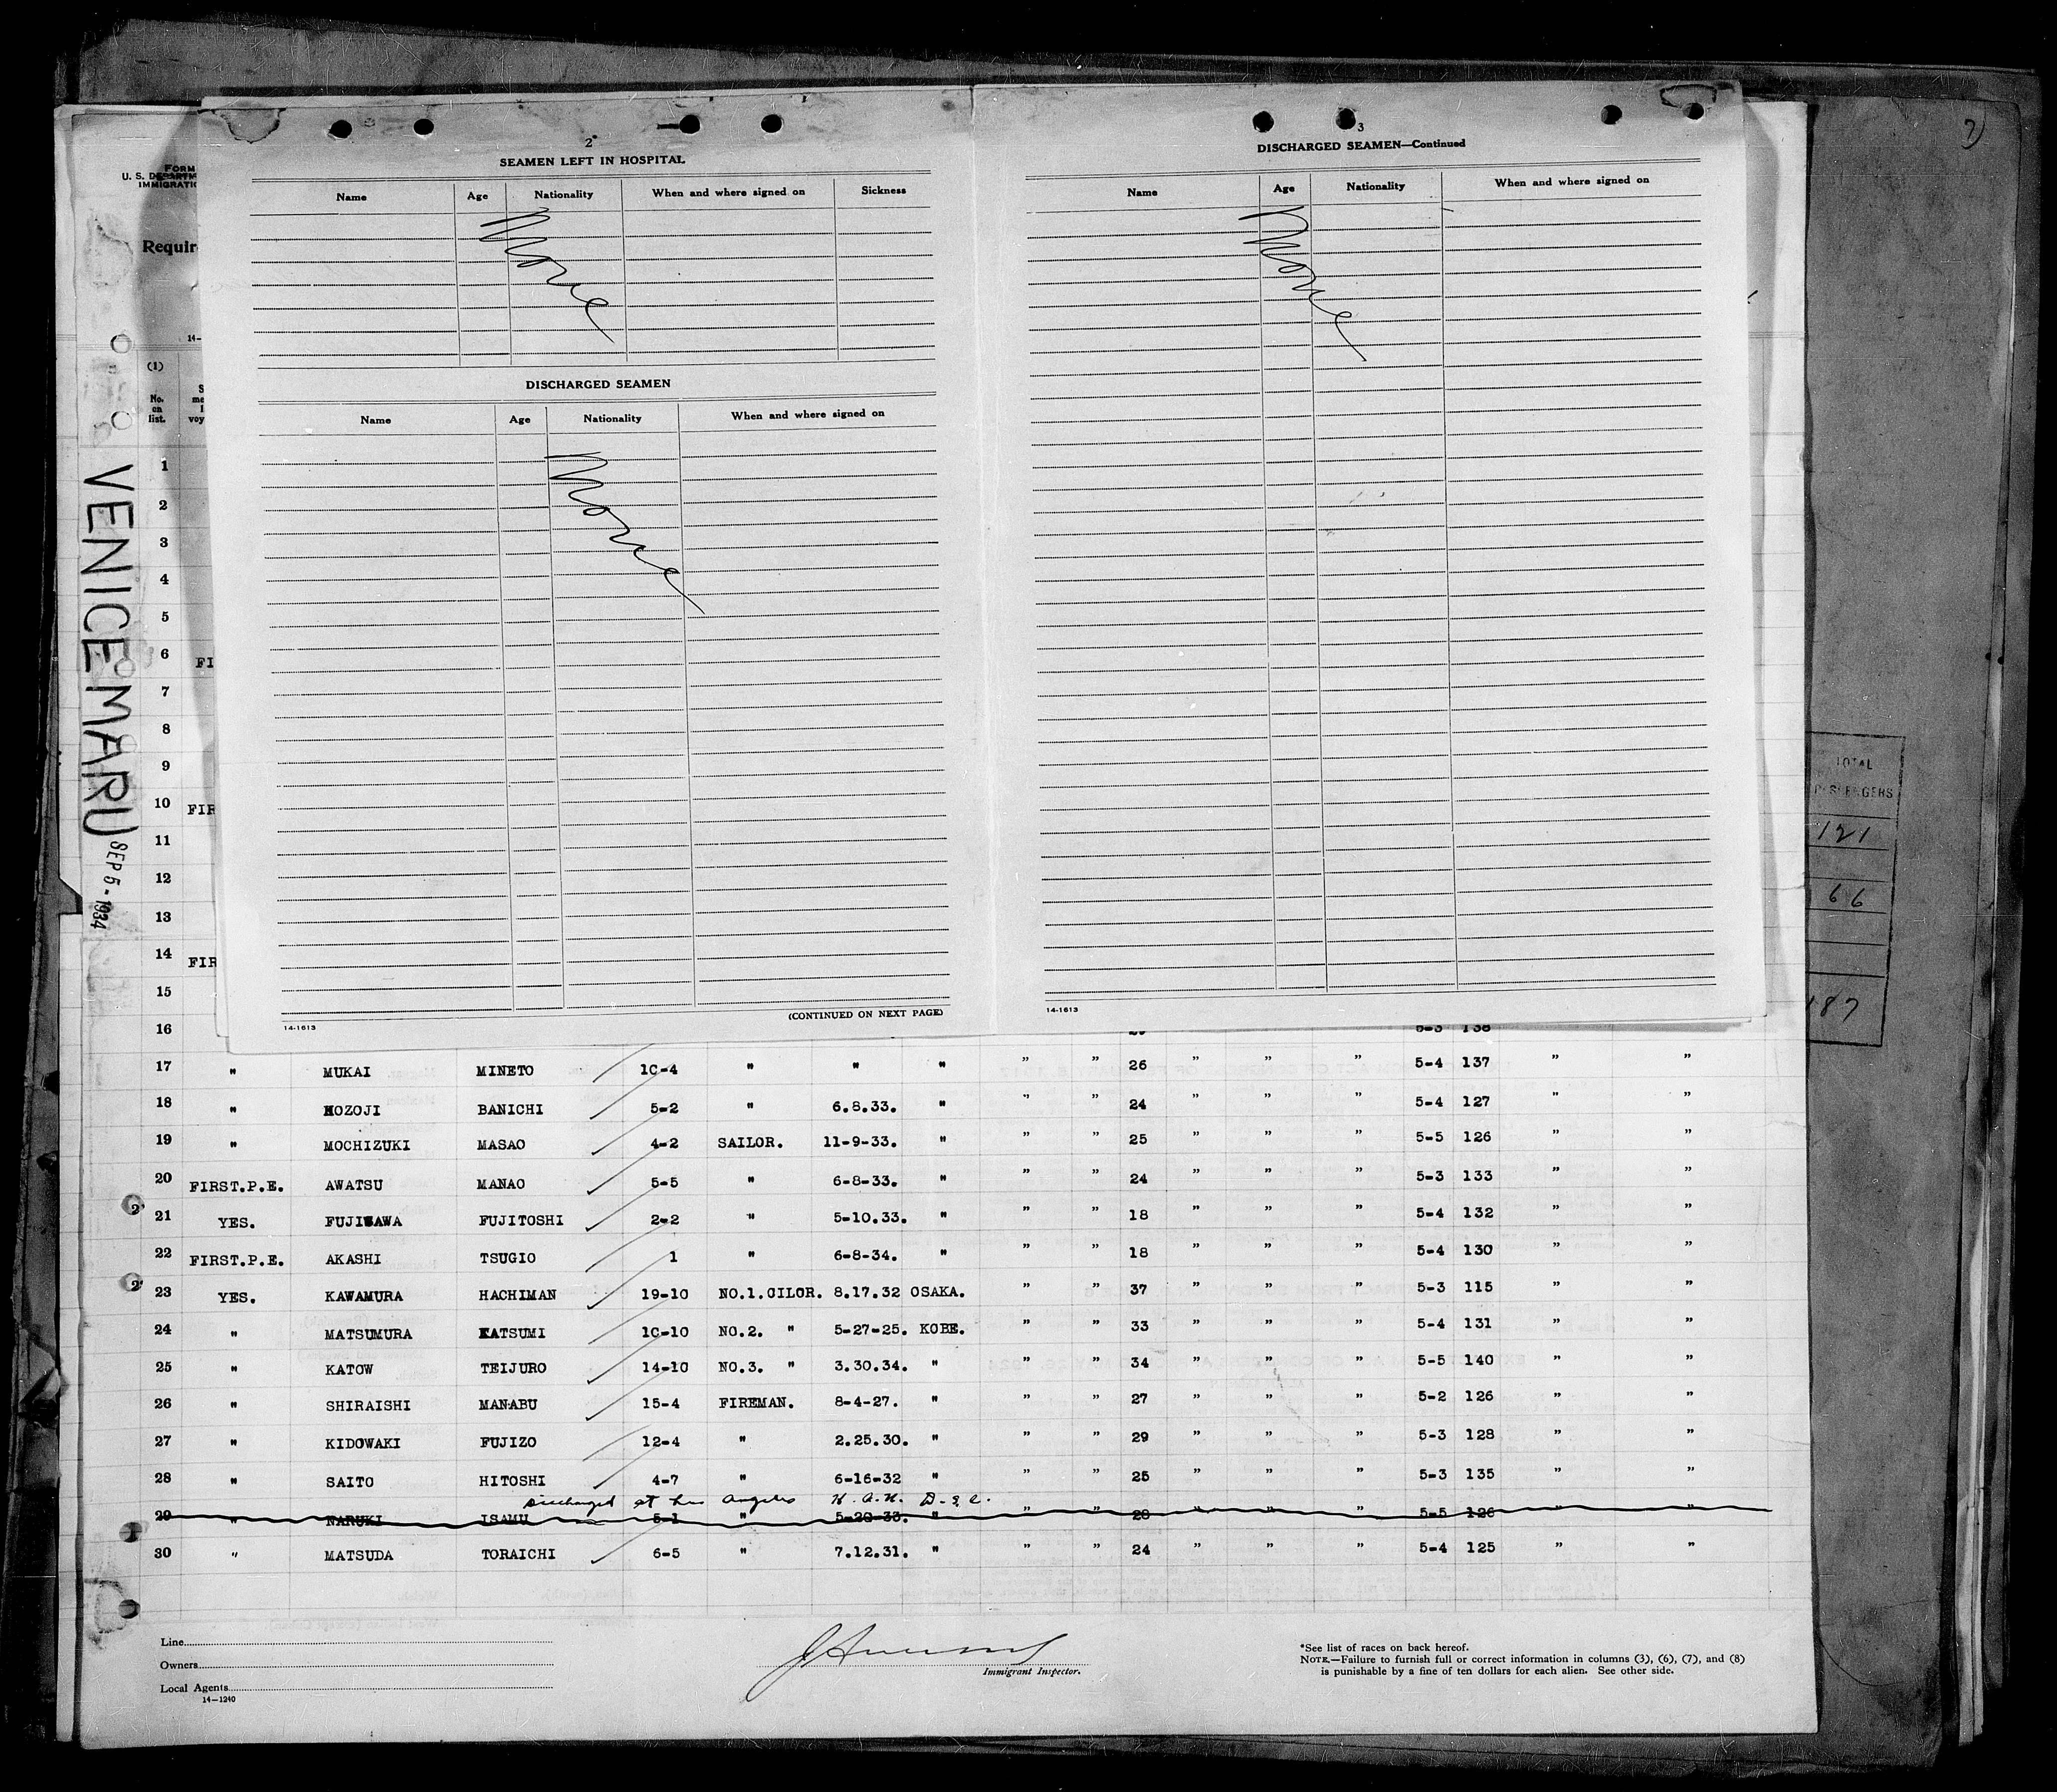 2
SEAMEN LEFT IN HOSPITAL
Name Age Nationality When and where signed on Sickness
None
DISCHARGED SEAMEN
Name Age Nationality When and where signed on
None
(CONTINUED ON NEXT PAGE)
14-1613
3
DISCHARGED SEAMEN—Continued
Name Age Nationality When and where signed on
None
14-1613
FORM
U. S. DEPARTM
IMMIGRATIO
Requir
14-
(1)
No. on list.
VENICE MARU SEP 5 - 1934
1
2
3
4
5
6 FI
7
8
9
10 FIR
11
12
13
14 FIR
15
16 138
17 " MUKAI MINETO 10-4 " " " " " 26 " " " 5-4 137 " "
18 " HOZOJI BANICHI 5-2 " 6.8.33. " " " 24 " " " 5-4 127 " "
19 " MOCHIZUKI MASAO 4-2 SAILOR. 11-9-33. " " " 25 " " " 5-5 126 " "
20 FIRST.P.E. AWATSU MANAO 5-5 " 6-8-33. " " " 24 " " " 5-3 133 " "
21 YES. FUJISAWA FUJITOSHI 2-2 " 5-10.33. " " " 18 " " " 5-4 132 " "
22 FIRST.P.E. AKASHI TSUGIO 1 " 6-8-34. " " " 18 " " " 5-4 130 " "
23 YES. KAWAMURA HACHIMAN 19-10 NO.1.OILOR. 8.17.32 OSAKA. " " 37 " " " 5-3 115 " "
24 " MATSUMURA KATSUMI 10-10 NO.2. " 5-27-25. KOBE. " " 33 " " " 5-4 131 " "
25 " KATOW TEIJURO 14-10 NO.3. " 3.30.34. " " " 34 " " " 5-5 140 " "
26 " SHIRAISHI MANABU 15-4 FIREMAN. 8-4-27. " " " 27 " " " 5-2 126 " "
27 " KIDOWAKI FUJIZO 12-4 " 2.25.30. " " " 29 " " " 5-3 128 " "
28 " SAITO HITOSHI 4-7 " 6-16-32 " " " 25 " " " 5-3 135 " "
Discharged at Los Angeles
29 " NARUKI ISAMU 5-1 " 5-20-33. " " " 28 " " " 5-5 126 " "
30 " MATSUDA TORAICHI 6-5 " 7.12.31. " " " 24 " " " 5-4 125 " "
Line
Owners
Local Agents
14-1240
Immigrant Inspector.
*See list of races on back hereof.
NOTE.—Failure to furnish full or correct information in columns (3), (6), (7), and (8)
is punishable by a fine of ten dollars for each alien. See other side.
TOTAL
PASSENGERS
121
66
187